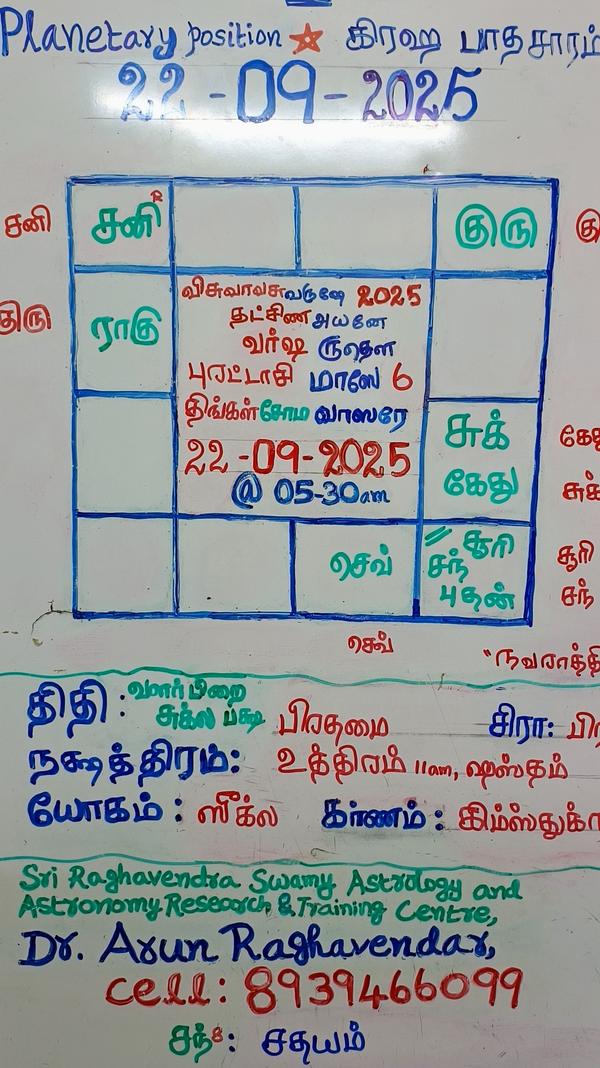 Planetary position ☆ கிரஹ பாதசாரம்
22-09-2025
சனி
சனி R
குரு
ராகு
விசுவாவசு வருஷே 2025
தட்சிண அயனே
வர்ஷ ருதௌ
புரட்டாசி மாஸே 6
திங்கள் சோம வாஸரே
22-09-2025
@ 05-30am
சுக்
கேது
சுக்
செவ்
// சூரி
சந்
புதன்
சூரி
சந்
செவ்
திதி : வளர்பிறை
சுக்ல பக்ஷ பிரதமை
சிரா:
நக்ஷத்திரம்: உத்திரம் 11am, ஹஸ்தம்
யோகம் : ஸுக்ல கரணம் :
Sri Raghavendra Swamy Astrology and
Astronomy Research & Training Centre,
Dr. Arun Raghavendar,
cell: 8939466099
சந் 8 : சதயம்